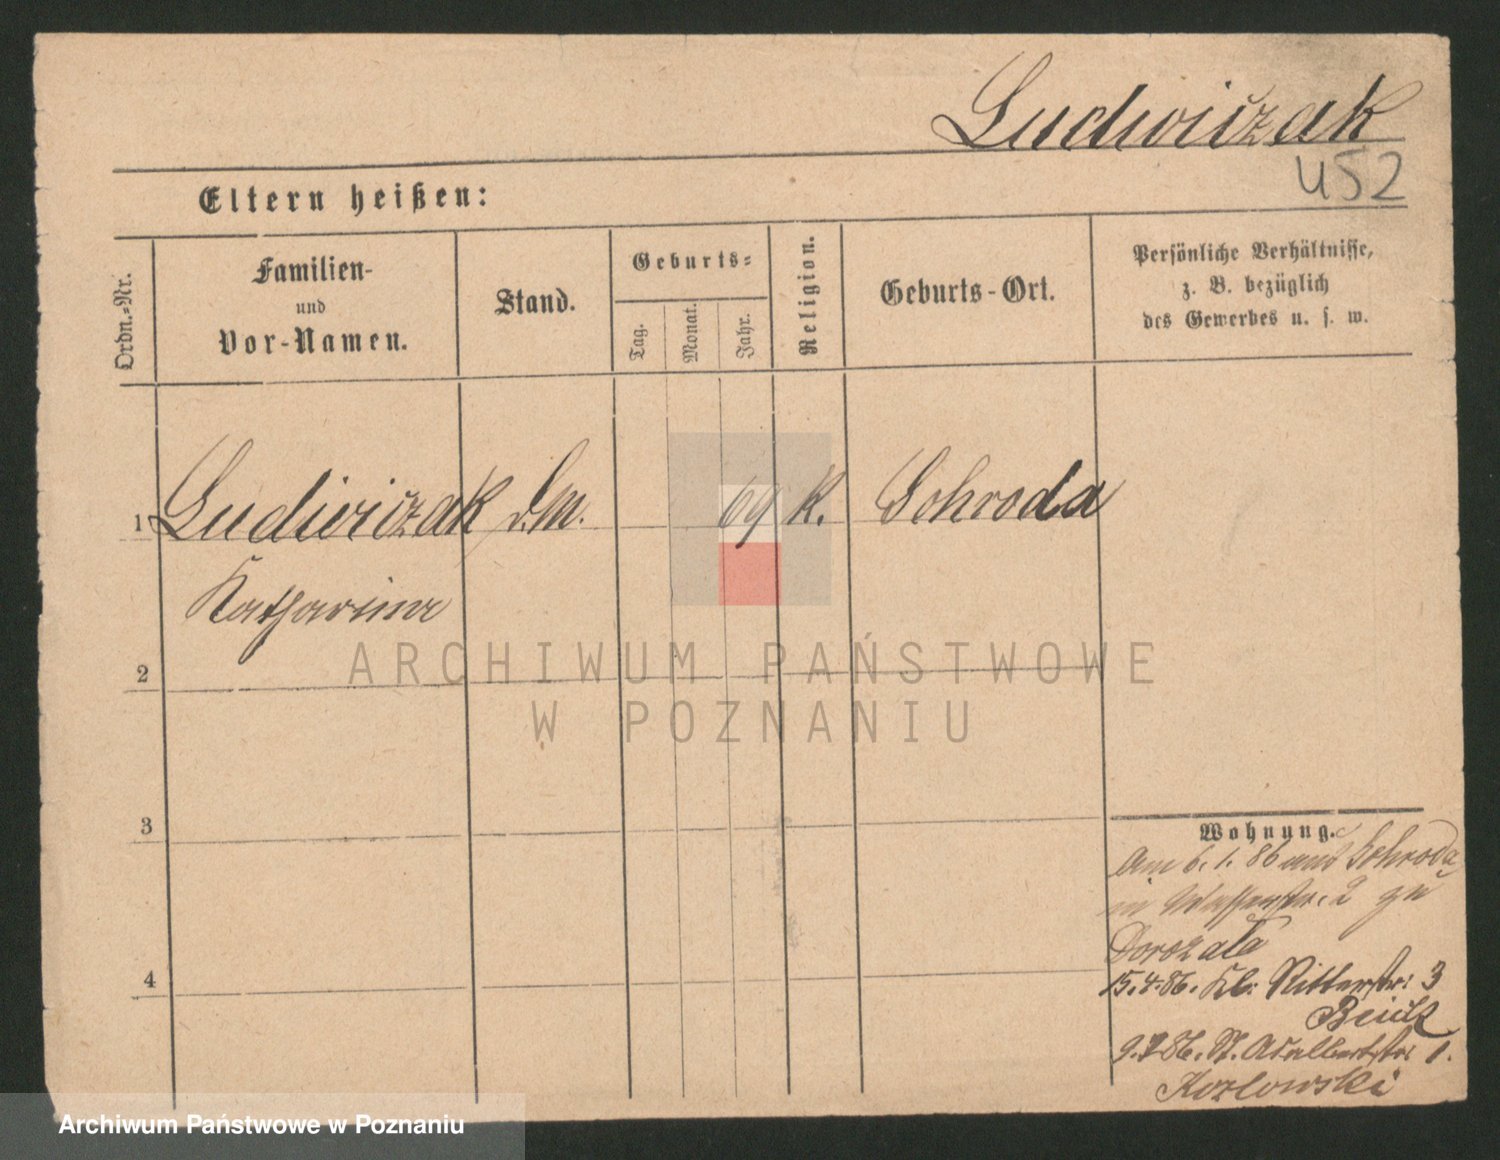 Ludwiczak
452
Eltern heißen:
Ordn.-Nr.
Familien-
und
Vor-Namen.
Stand.
Geburts-
Tag.
Monat.
Jahr.
Religion.
Geburts-Ort.
Persönliche Verhältnisse,
z. B. bezüglich
des Gewerbes u. s. w.
1 Ludwiczak d.M. 69 K. Schroda
Katharina
2
3
4
Wohnung.
Am 6.1.86 aus Schroda
in Wasserstr. 2 zu
Dorozala
15.4.86. Kl. Ritterstr: 3
9.7.86. St. Adalbertstr: 1.
Kozlowski
ARCHIWUM PAŃSTWOWE
W POZNANIU
Archiwum Państwowe w Poznaniu